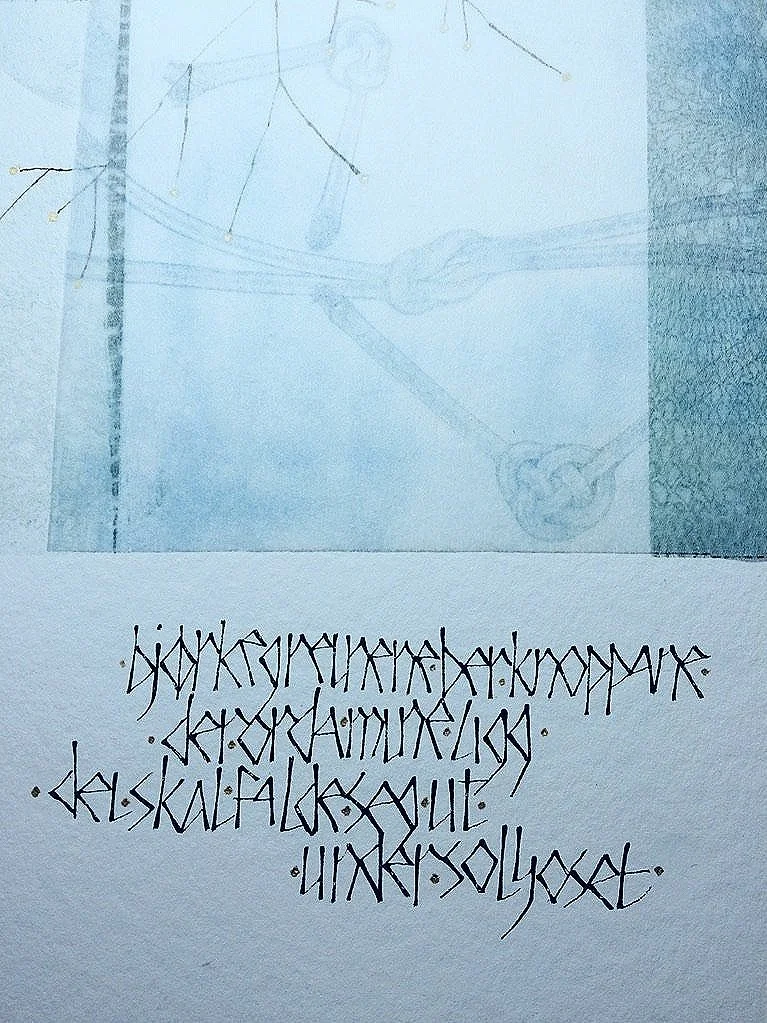 bjørkegreinene ber knoppane
der orda mine ligg
dei skal falde seg ut
under solljoset